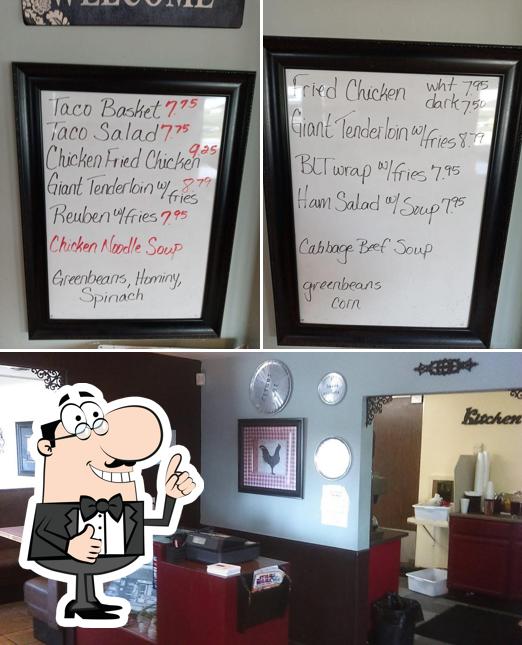 WELCOME
Taco Basket 7.75
Taco Salad 7.75
Chicken Fried Chicken 9.25
Giant Tenderloin w/ fries 8.79
Reuben w/fries 7.95
Chicken Noodle Soup
Greenbeans, Hominy,
Spinach
Fried Chicken wht 7.95
dark 7.50
Giant Tenderloin w/fries 8.79
BLT wrap w/fries 7.95
Ham Salad w/ Soup 7.95
Cabbage Beef Soup
greenbeans
corn
Kitchen